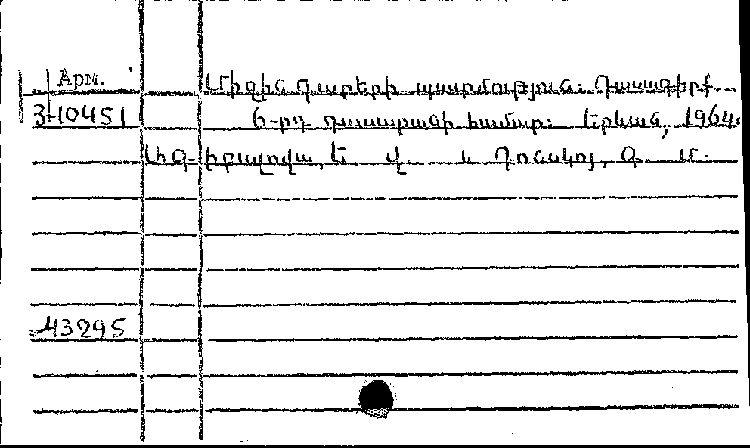 Арм.
Միջին դարերի պատմություն: Դասագիրք
3-10451
6-րդ դասարանի համար: Երևան, 1964.
Ե. Վ. և Դոնսկոյ, Գ. Մ.
43295